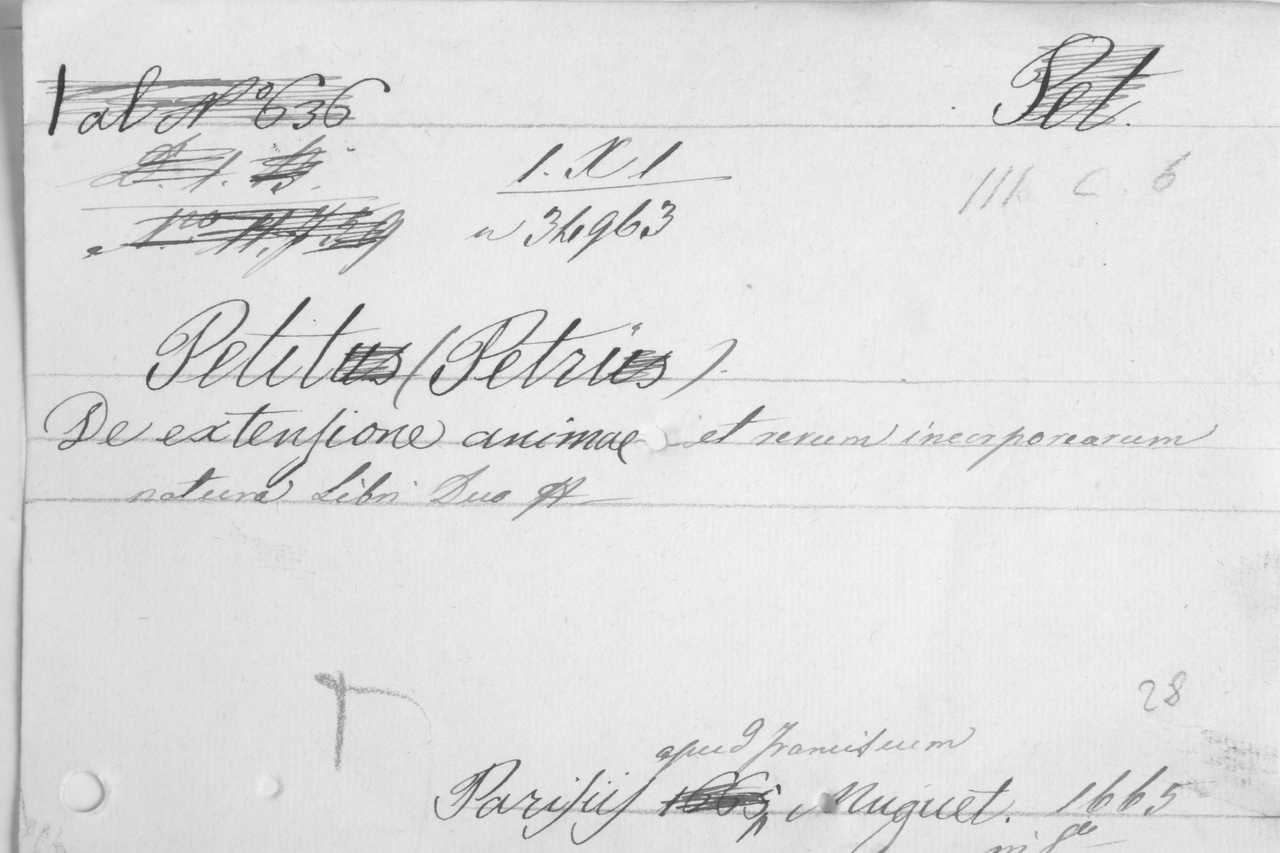 ab No 636 Pet.
1. X 1 III C. 6
n 34963
Petitus (Petrius)
De extensione animae et rerum incorporearum
natura Libri Duo
28
apud Franciscum
Parisiis 1665 Muguet. 1665
in 8o